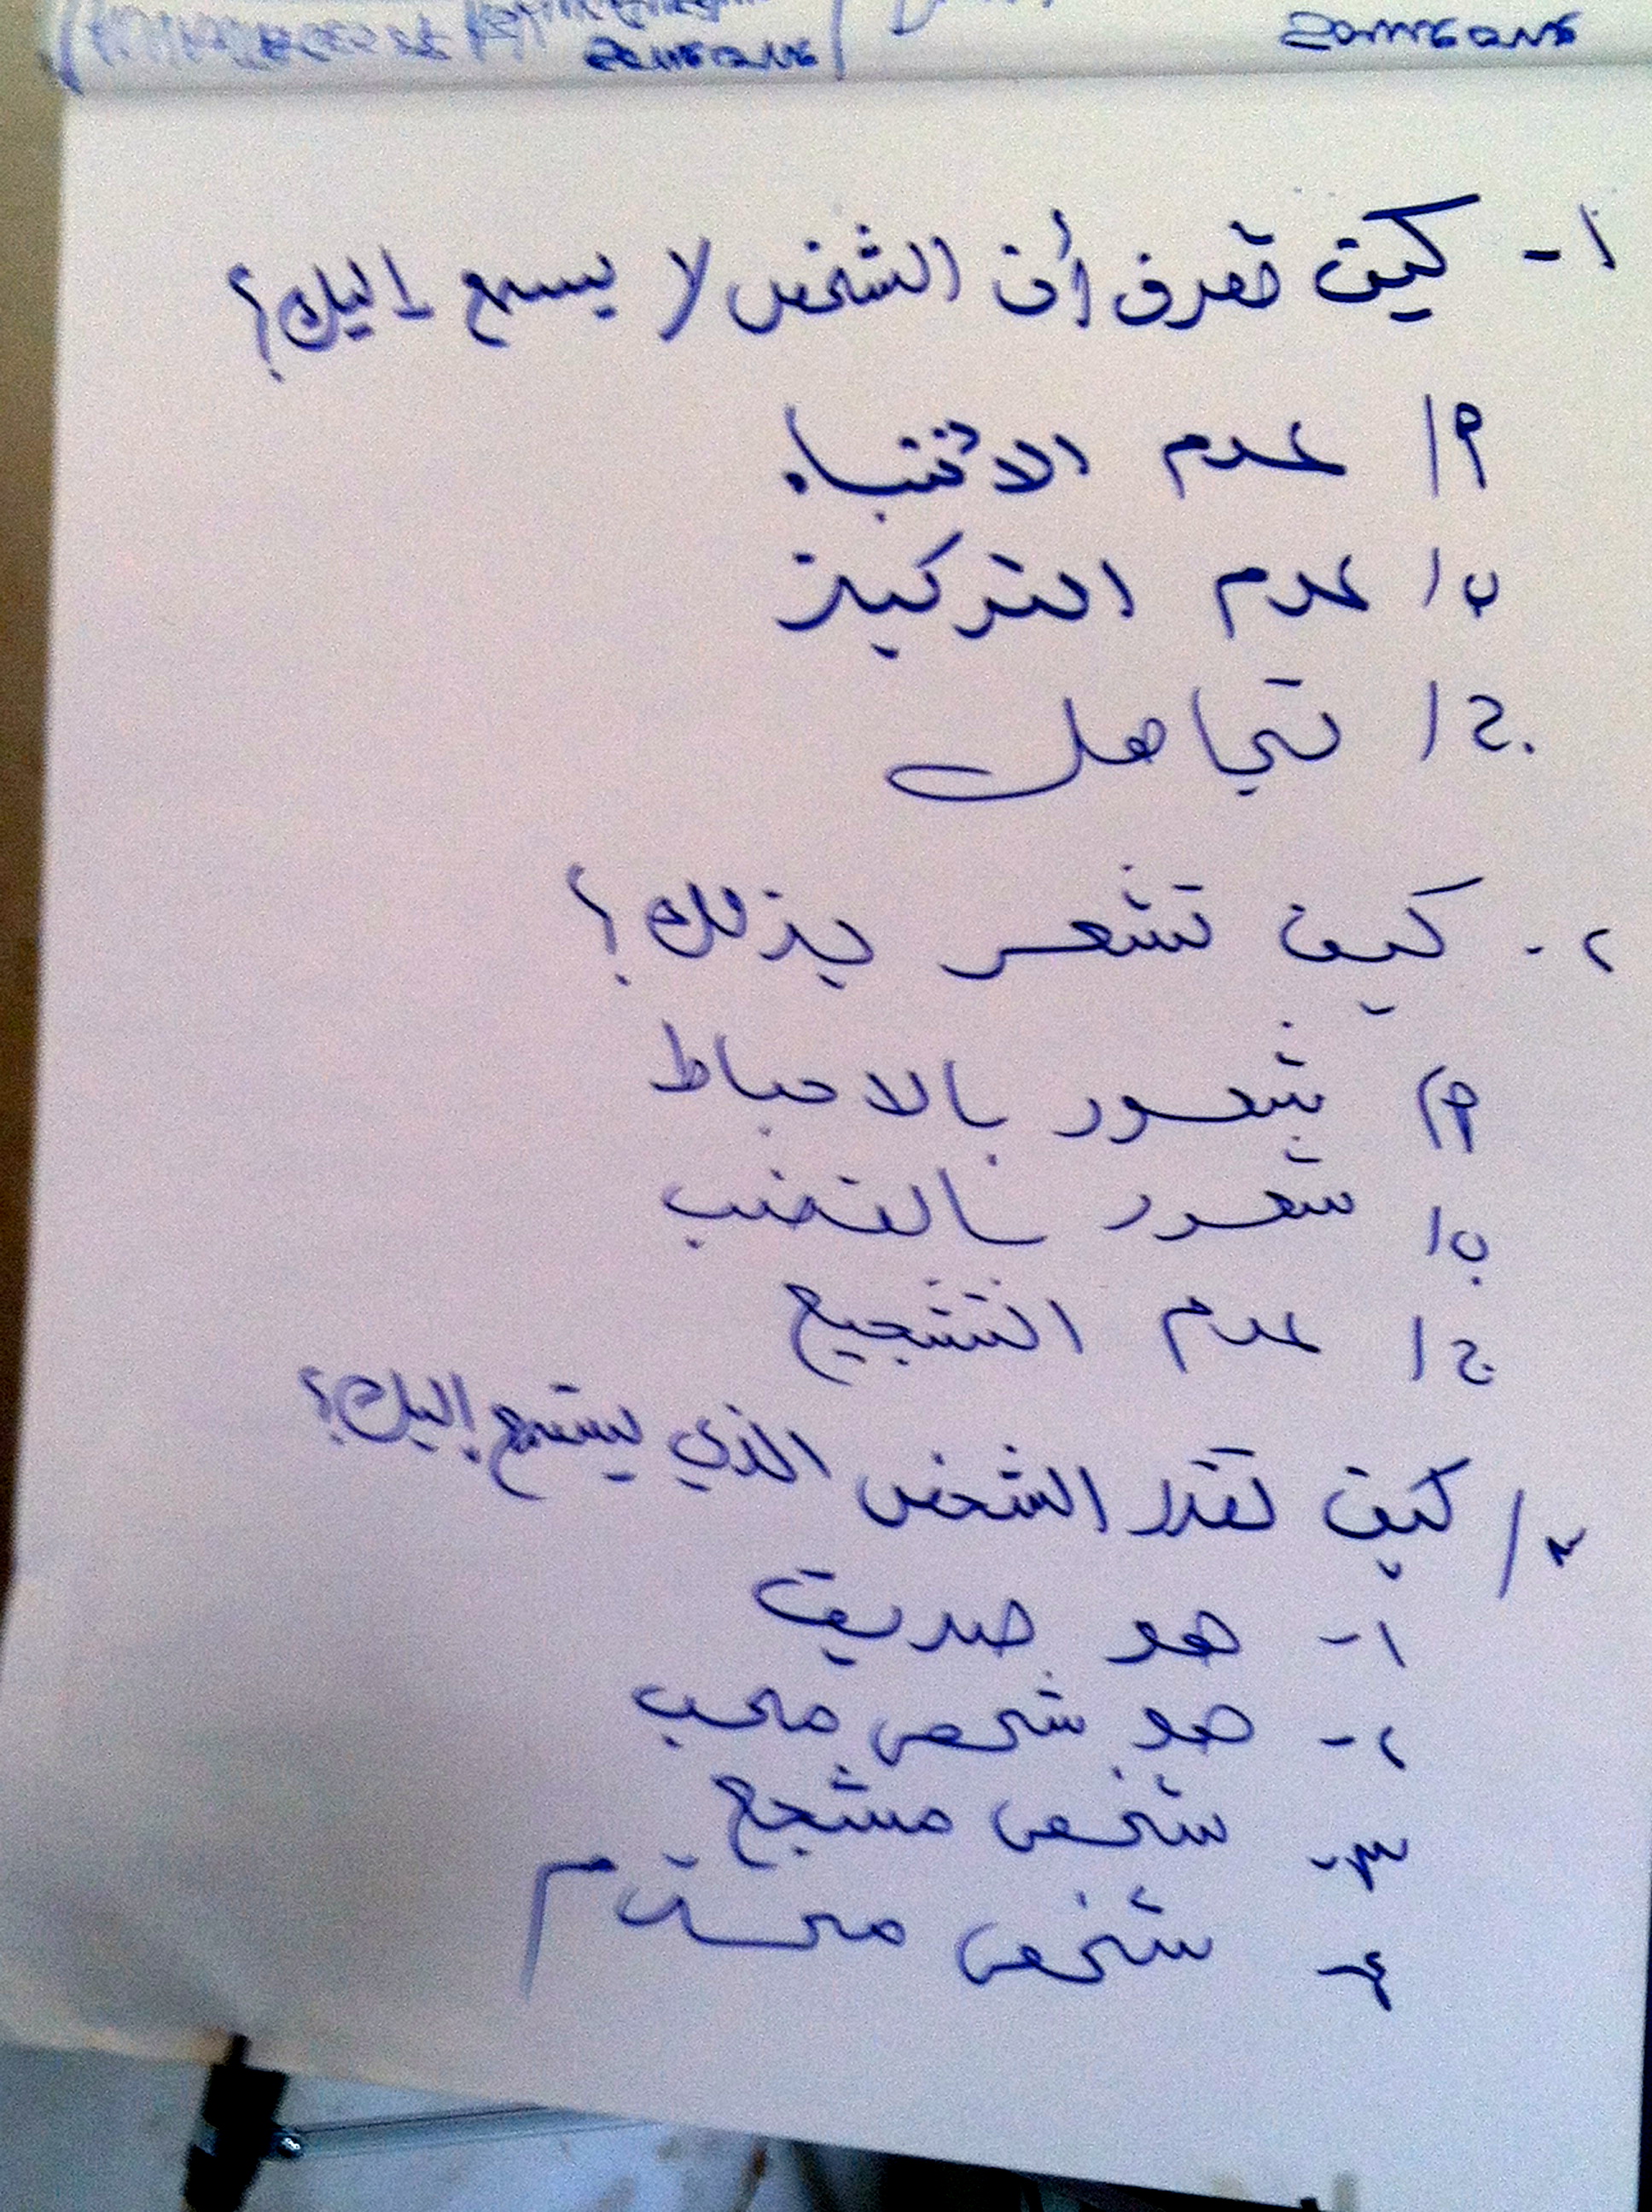 ١- كيف تعرف أن الشخص لا يسمع إليك؟
أ/ عدم الانتباه
ب/ عدم التركيز
ج/ تجاهل
٢- كيف تشعر بذلك؟
أ) شعور بالاحباط
ب/ شعور بالغضب
ج/ عدم التشجيع
٣/ كيف تقدر الشخص الذي يستمع إليك؟
١- هو صديق
٢- هو شخص محب
٣- شخص مشجع
٤- شخص محترم